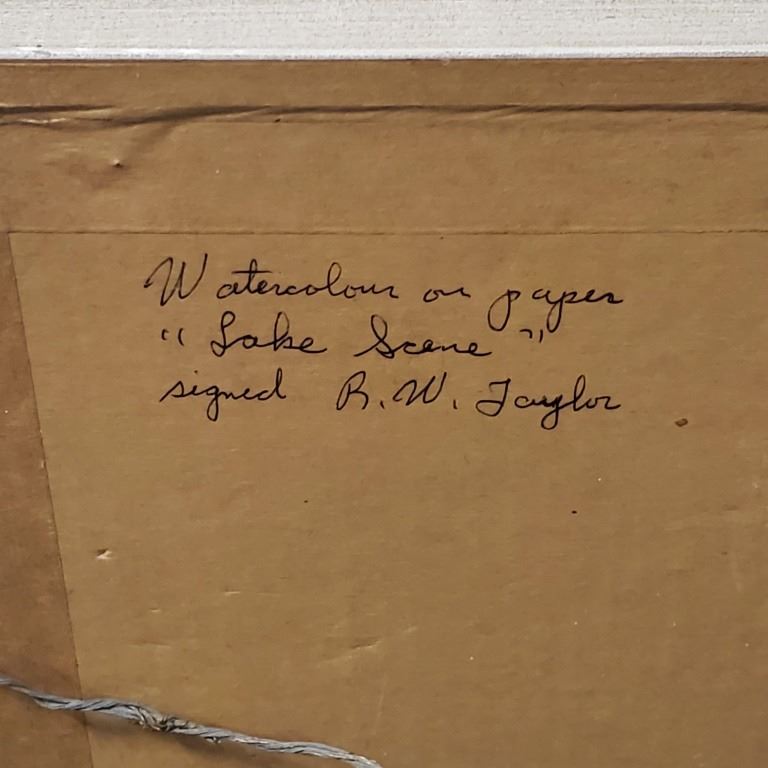 Watercolour on paper
"Lake Scene"
signed R. W. Taylor